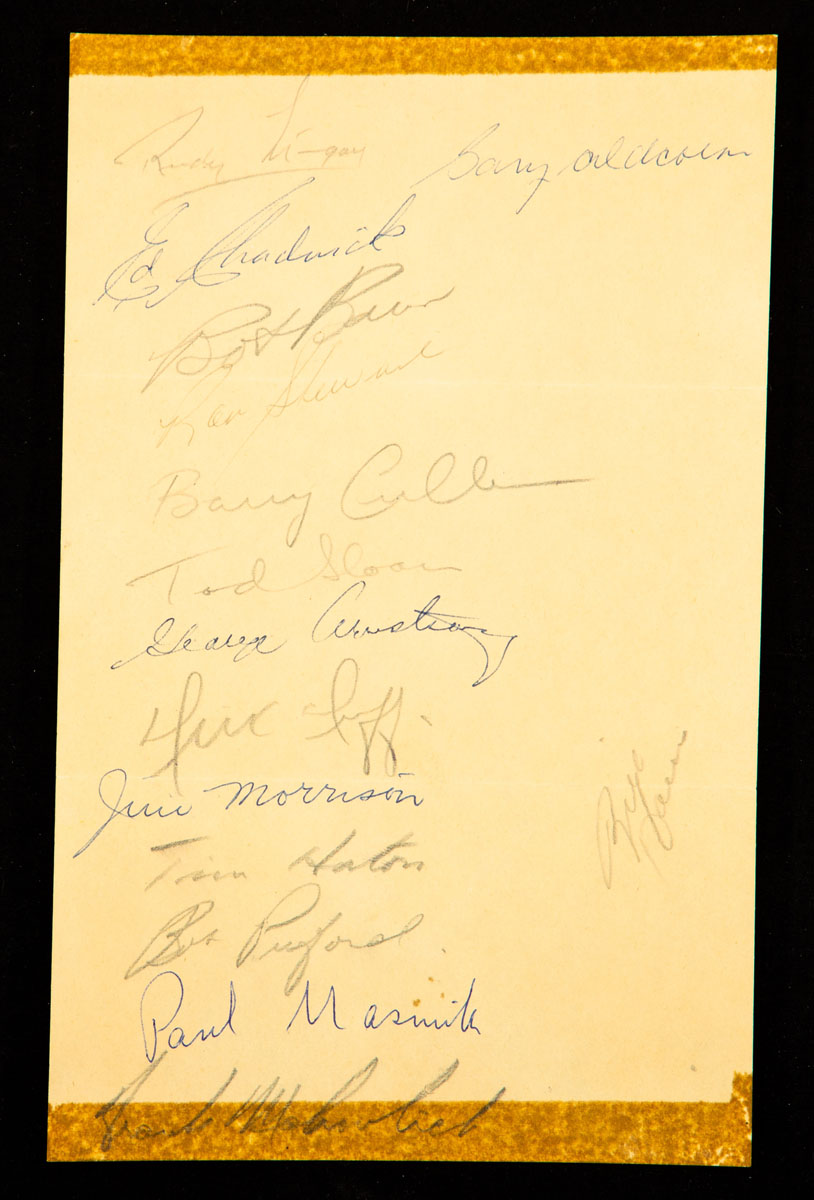 Rudy Migay
Gary Aldcorn
Ed Chadwick
Bob Baun
Ron Stewart
Barry Cullen
Tod Sloan
George Armstrong
Dick Duff
Jim Morrison
Tim Horton
Bob Pulford
Paul Masnick
Frank Mahovlich